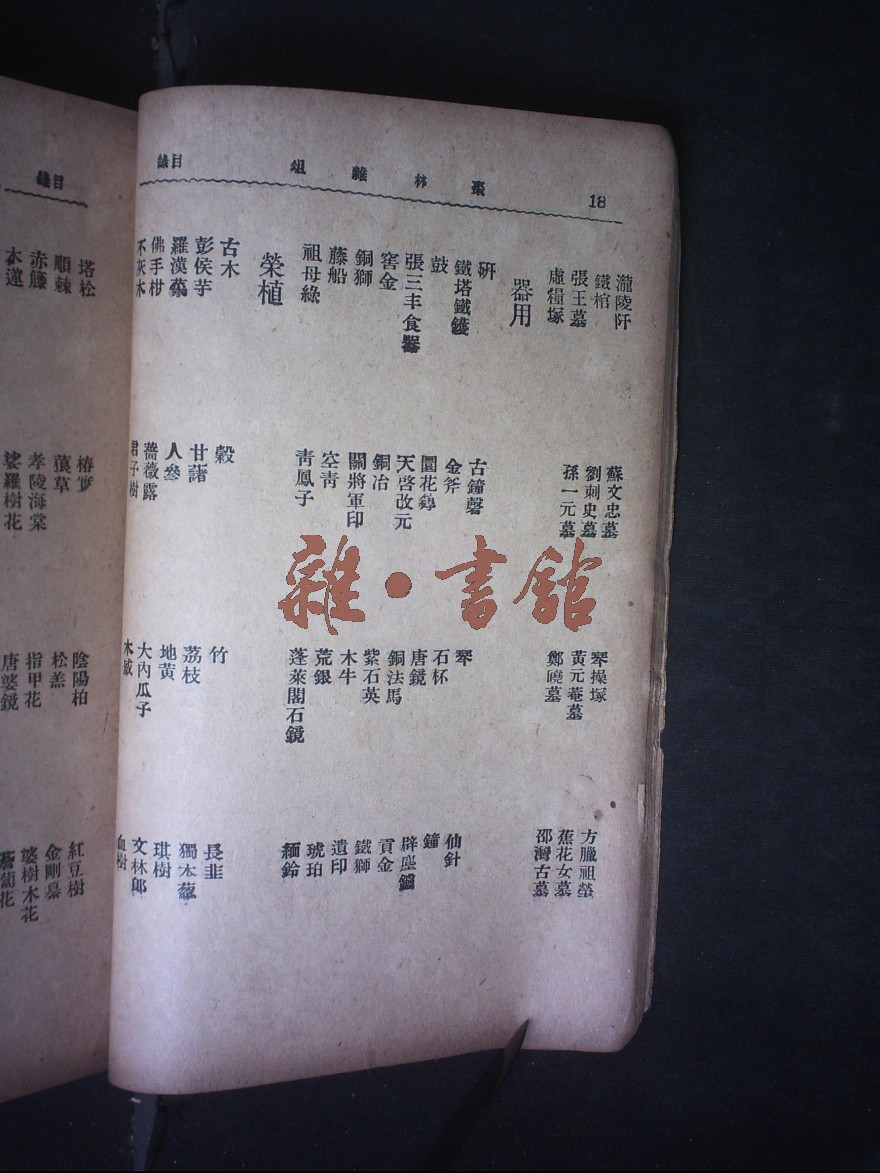 18 棗林雜俎 目錄
瀧陵阡 蘇文忠墓 琴操塚 方臘祖塋
鐵棺 劉刺史墓 黃元菴墓 蕉花女墓
張王墓 孫一元墓 鄭曉墓 邵灣古墓
虛糧塚
器用
硏 古鐘磬 琴 仙針
鐵塔鐵鑊 金斧 石杯 鐘
鼓 圜花鐏 唐鏡 辟塵
張三丰食器 天啓改元 銅法馬 貢金
窖金 銅冶 紫石英 鐵獅
銅獅 關將軍印 木牛 遺印
藤船 空靑 荒銀 琥珀
祖母綠 靑鳳子 蓬萊閣石鏡 緬鈴
榮植
古木 穀 竹 長韭
彭侯芋 甘藷 荔枝 獨本葱
羅漢 人參 地黃 琪樹
佛手柑 薔薇露 大內瓜子 文林郞
不灰木 君子樹 木威 血樹
目錄
塔松 椿 陰陽柏 紅豆樹
順棘 草 松羔 金剛纂
赤藤 孝陵海棠 指甲花 婆樹木花
木蓮 娑羅樹花 唐婆鏡 花
雜•書館